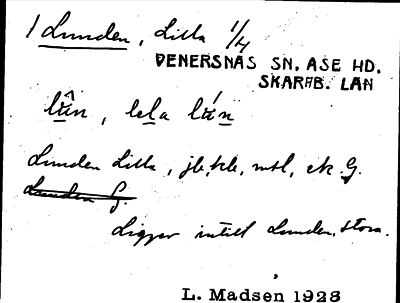 1 Lunden, Lilla 1/4
VENERSNÄS SN. ÅSE HD.
SKARAB. LÄN
lūn, lela lūn
Lunden Lilla, jb, kb, mtl, ek. G.
Lunden G.
Ligger intill Lunden, Stora.
L. Madsen 1928